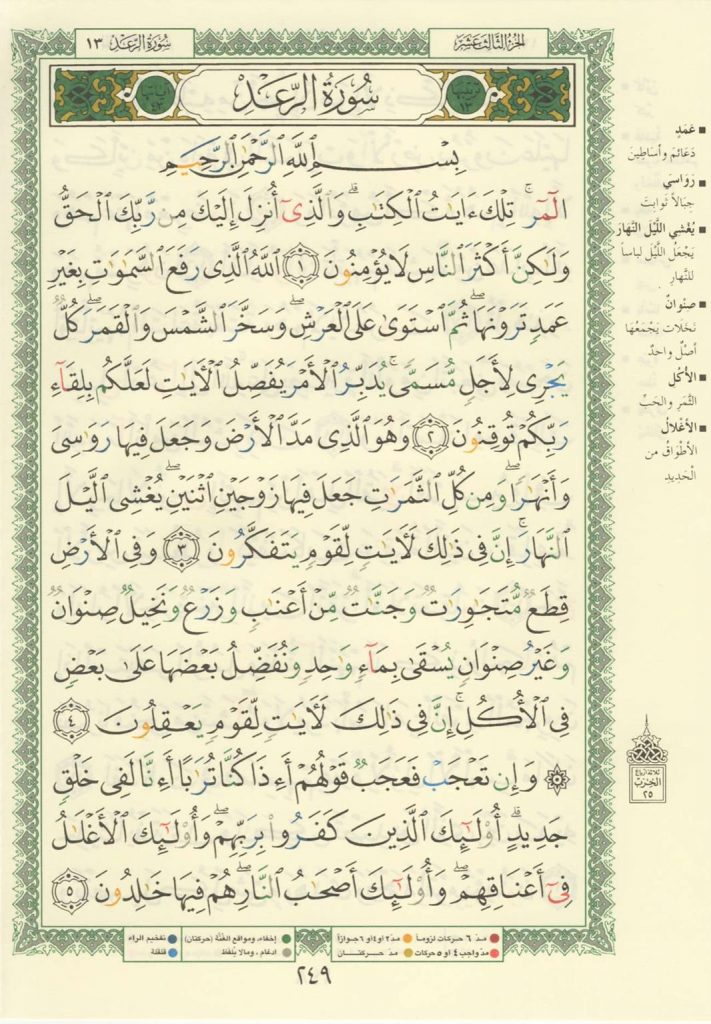 الجزء الثالث عشر
سورة الرعد ١٣
سُورَةُ الرَّعْدِ
بِسْمِ ٱللَّهِ ٱلرَّحْمَٰنِ ٱلرَّحِيمِ
الٓمٓر ۚ تِلْكَ ءَايَٰتُ ٱلْكِتَٰبِ ۗ وَٱلَّذِىٓ أُنزِلَ إِلَيْكَ مِن رَّبِّكَ ٱلْحَقُّ
وَلَٰكِنَّ أَكْثَرَ ٱلنَّاسِ لَا يُؤْمِنُونَ ١ ٱللَّهُ ٱلَّذِى رَفَعَ ٱلسَّمَٰوَٰتِ بِغَيْرِ
عَمَدٍ تَرَوْنَهَا ۖ ثُمَّ ٱسْتَوَىٰ عَلَى ٱلْعَرْشِ ۖ وَسَخَّرَ ٱلشَّمْسَ وَٱلْقَمَرَ ۖ كُلٌّ
يَجْرِى لِأَجَلٍ مُّسَمًّى ۚ يُدَبِّرُ ٱلْأَمْرَ يُفَصِّلُ ٱلْءَايَٰتِ لَعَلَّكُم بِلِقَآءِ
رَبِّكُمْ تُوقِنُونَ ٢ وَهُوَ ٱلَّذِى مَدَّ ٱلْأَرْضَ وَجَعَلَ فِيهَا رَوَٰسِىَ
وَأَنْهَٰرًا ۖ وَمِن كُلِّ ٱلثَّمَرَٰتِ جَعَلَ فِيهَا زَوْجَيْنِ ٱثْنَيْنِ ۖ يُغْشِى ٱلَّيْلَ
ٱلنَّهَارَ ۚ إِنَّ فِى ذَٰلِكَ لَءَايَٰتٍ لِّقَوْمٍ يَتَفَكَّرُونَ ٣ وَفِى ٱلْأَرْضِ
قِطَعٌ مُّتَجَٰوِرَٰتٌ وَجَنَّٰتٌ مِّنْ أَعْنَٰبٍ وَزَرْعٌ وَنَخِيلٌ صِنْوَانٌ
وَغَيْرُ صِنْوَانٍ يُسْقَىٰ بِمَآءٍ وَٰحِدٍ وَنُفَضِّلُ بَعْضَهَا عَلَىٰ بَعْضٍ
فِى ٱلْأُكُلِ ۚ إِنَّ فِى ذَٰلِكَ لَءَايَٰتٍ لِّقَوْمٍ يَعْقِلُونَ ٤
۞ وَإِن تَعْجَبْ فَعَجَبٌ قَوْلُهُمْ أَءِذَا كُنَّا تُرَٰبًا أَءِنَّا لَفِى خَلْقٍ
جَدِيدٍ ۗ أُو۟لَٰٓئِكَ ٱلَّذِينَ كَفَرُوا۟ بِرَبِّهِمْ ۖ وَأُو۟لَٰٓئِكَ ٱلْأَغْلَٰلُ
فِىٓ أَعْنَاقِهِمْ ۖ وَأُو۟لَٰٓئِكَ أَصْحَٰبُ ٱلنَّارِ ۖ هُمْ فِيهَا خَٰلِدُونَ ٥
عَمَدٍ
دَعَائمَ وأساطِينَ
رَوَاسي
جبَالاً ثَوابتَ
يُغْشي اللَّيْلَ النَّهارَ
يَجْعَلُ اللَّيْلَ لباساً
للنَّهارِ
صِنْوانٌ
نَخَلات يَجْمَعُهَا
أصْلٌ واحدٌ
الأُكُلِ
الثَّمَرِ والحَبِّ
الأغْلالُ
الأطْوَاقُ من
الْحَديد
ثلاثة أرباع
الحزب
٢٥
مدّ ٦ حركات لزوماً
مدّ ٢ أو ٤ أو ٦ جوازاً
إخفاء، ومواقع الغُنَّة (حركتان)
تفخيم الراء
مدّ واجب ٤ أو ٥ حركات
مدّ حركتان
ادغام، ومالا يُلفظ
قلقلة
٢٤٩